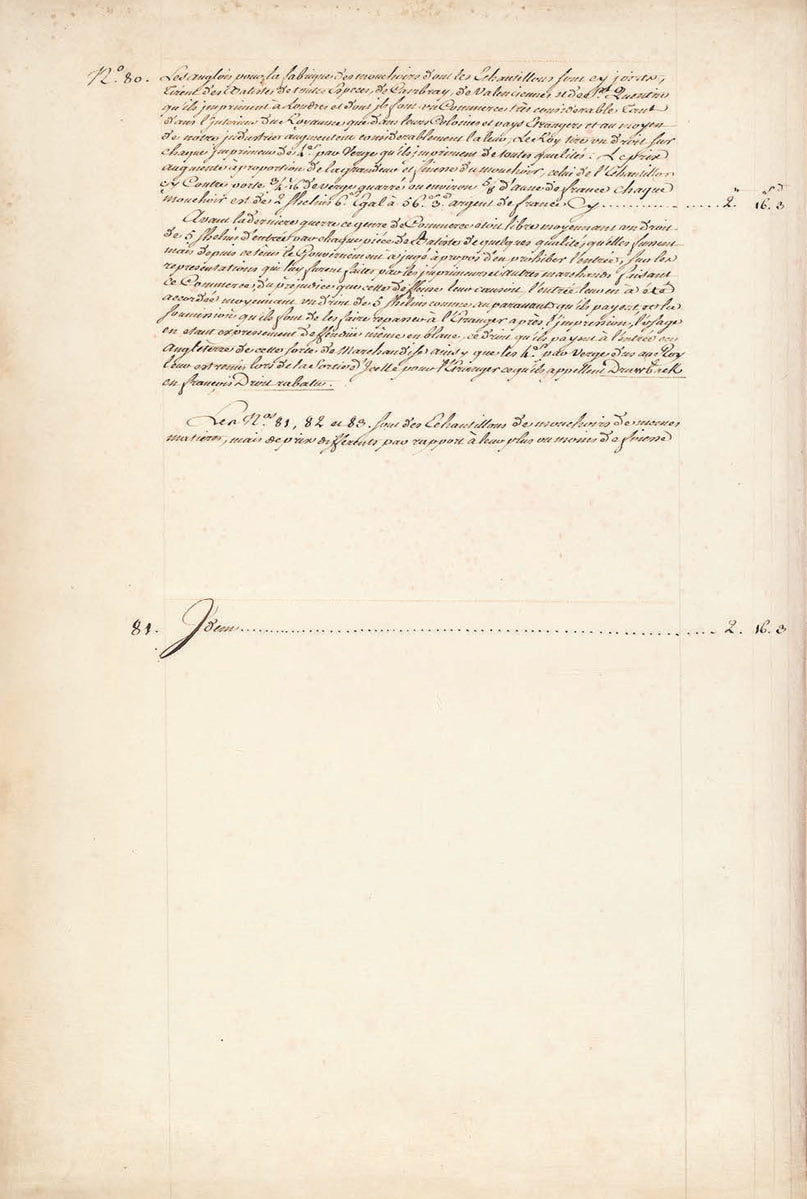 N.º 80. Les anglois pour la fabrique des mouchoirs dont les Echantillons sont cy joints,
tirent des Batistes de toutes Especes, de Cambray, de Valenciennes et de St. Quentin
qu'ils impriment à Londres et dont ils font un Commerce très considerable tant
dans l'interieur du Royaume que dans leurs Colonies et pays Etrangers et au moyen
de notre industrie augmentent considerablement la leur, Le Roy tire un droit sur
chaque imprimeur de 4.d par Verge qu'ils impriment de toutes qualités. Le prix
augmente à proportion de la grandeur et finesse du mouchoir, celui de l'Echantillon
cy Contre porte 3/4 1/16 de verge quarré ou environ d'aune de france Chaque
mouchoir est de 2 shelins 6.d Egal à 56.s 3.d argent de france Cy.......... 2." 16.s 3.d
Avant la derniere guerre ce genre de Commerce etoit libre moyennant un droit
de 5 shelins d'entrée par chaque piéce de Batiste de quelques qualité, qu'elles fussent
mais depuis ce tems le Gouvernement a jugé à propos d'en prohiber l'entrée, sur les
representations qui luy furent faites par les imprimeurs et autres marchands faisant
ce Commerce, du prejudice que cette deffense leur causoit, l'entrée leur en à été
accordée moyennant un droit de 5 shelins comme au paravant qu'ils payent, et la
soumission qu'ils font de les faire repasser à l'Etranger après l'impression, l'usage
en etant expressement deffendüe même en blanc, ce droit qu'ils payent à l'entrée en
Angleterre de cette sorte de Marchandise ainsy que les 4.d par Verge dus au Roy
leur est remis lors de la Sortie d'Icelle pour l'Etranger ce qu'ils appellent Drawback
en françois Droit rabatu.
Les N.os 81, 82 et 83. sont des Echantillons de mouchoirs de memes
matieres, mais de prix differents par rapport à leur plus ou moins de finesse
81. Idem.......... 2. 16. 3